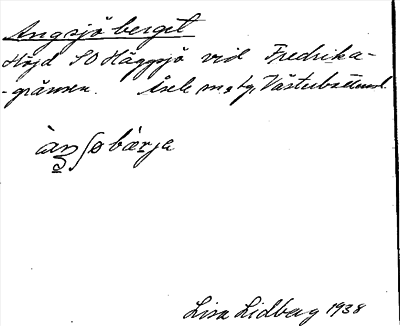 Angsjöberget
Höjd SO Häggsjö vid Fredrika-
-gränsen. Åsele m, Västerbottensl.
àŋʃøbàrja
Lisa Lidberg 1938